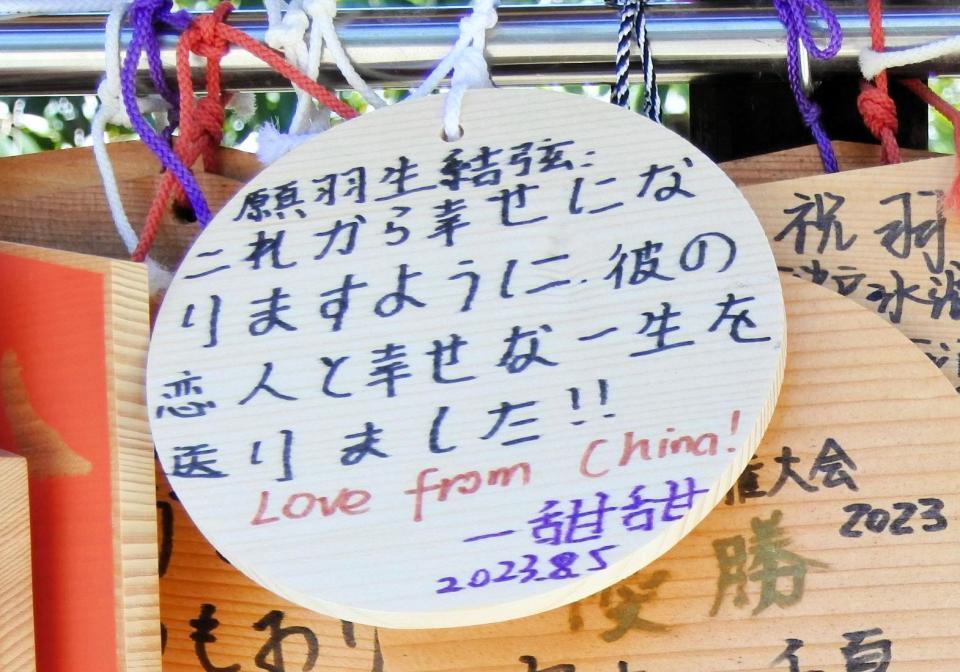 願羽生結弦：
二れから幸せにな
りますように.彼の
恋人と幸せな一生を
送りました!!
Love from China!
一甜甜
2023.8.5
祝 羽
氷
大会
2023
優勝
もおり